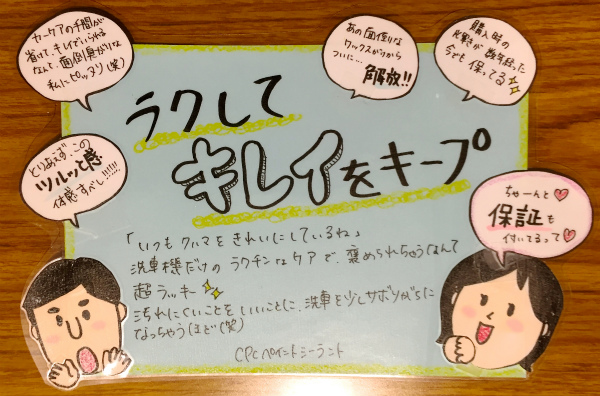 カーケアの手間が
省けてキレイでいられる
なんて、面倒臭がりな
私にピッタリ(笑)
あの面倒な
ワックスがけから
ついに…
解放!!
購入時の
輝きが数年経った
今でも保ってる
とりあえずこの
ツルッと感
体感すべし!!!!!!
ラクして
キレイをキープ
ちゃーんと
保証も
付いてるって
「いつもクルマをきれいにしているね」
洗車機だけのラクチンなケアで、褒められちゃうなんて
超ラッキー
汚れにくいことをいいことに、洗車を少しサボりがちに
なっちゃうほど(笑)
CPCペイントシーラント